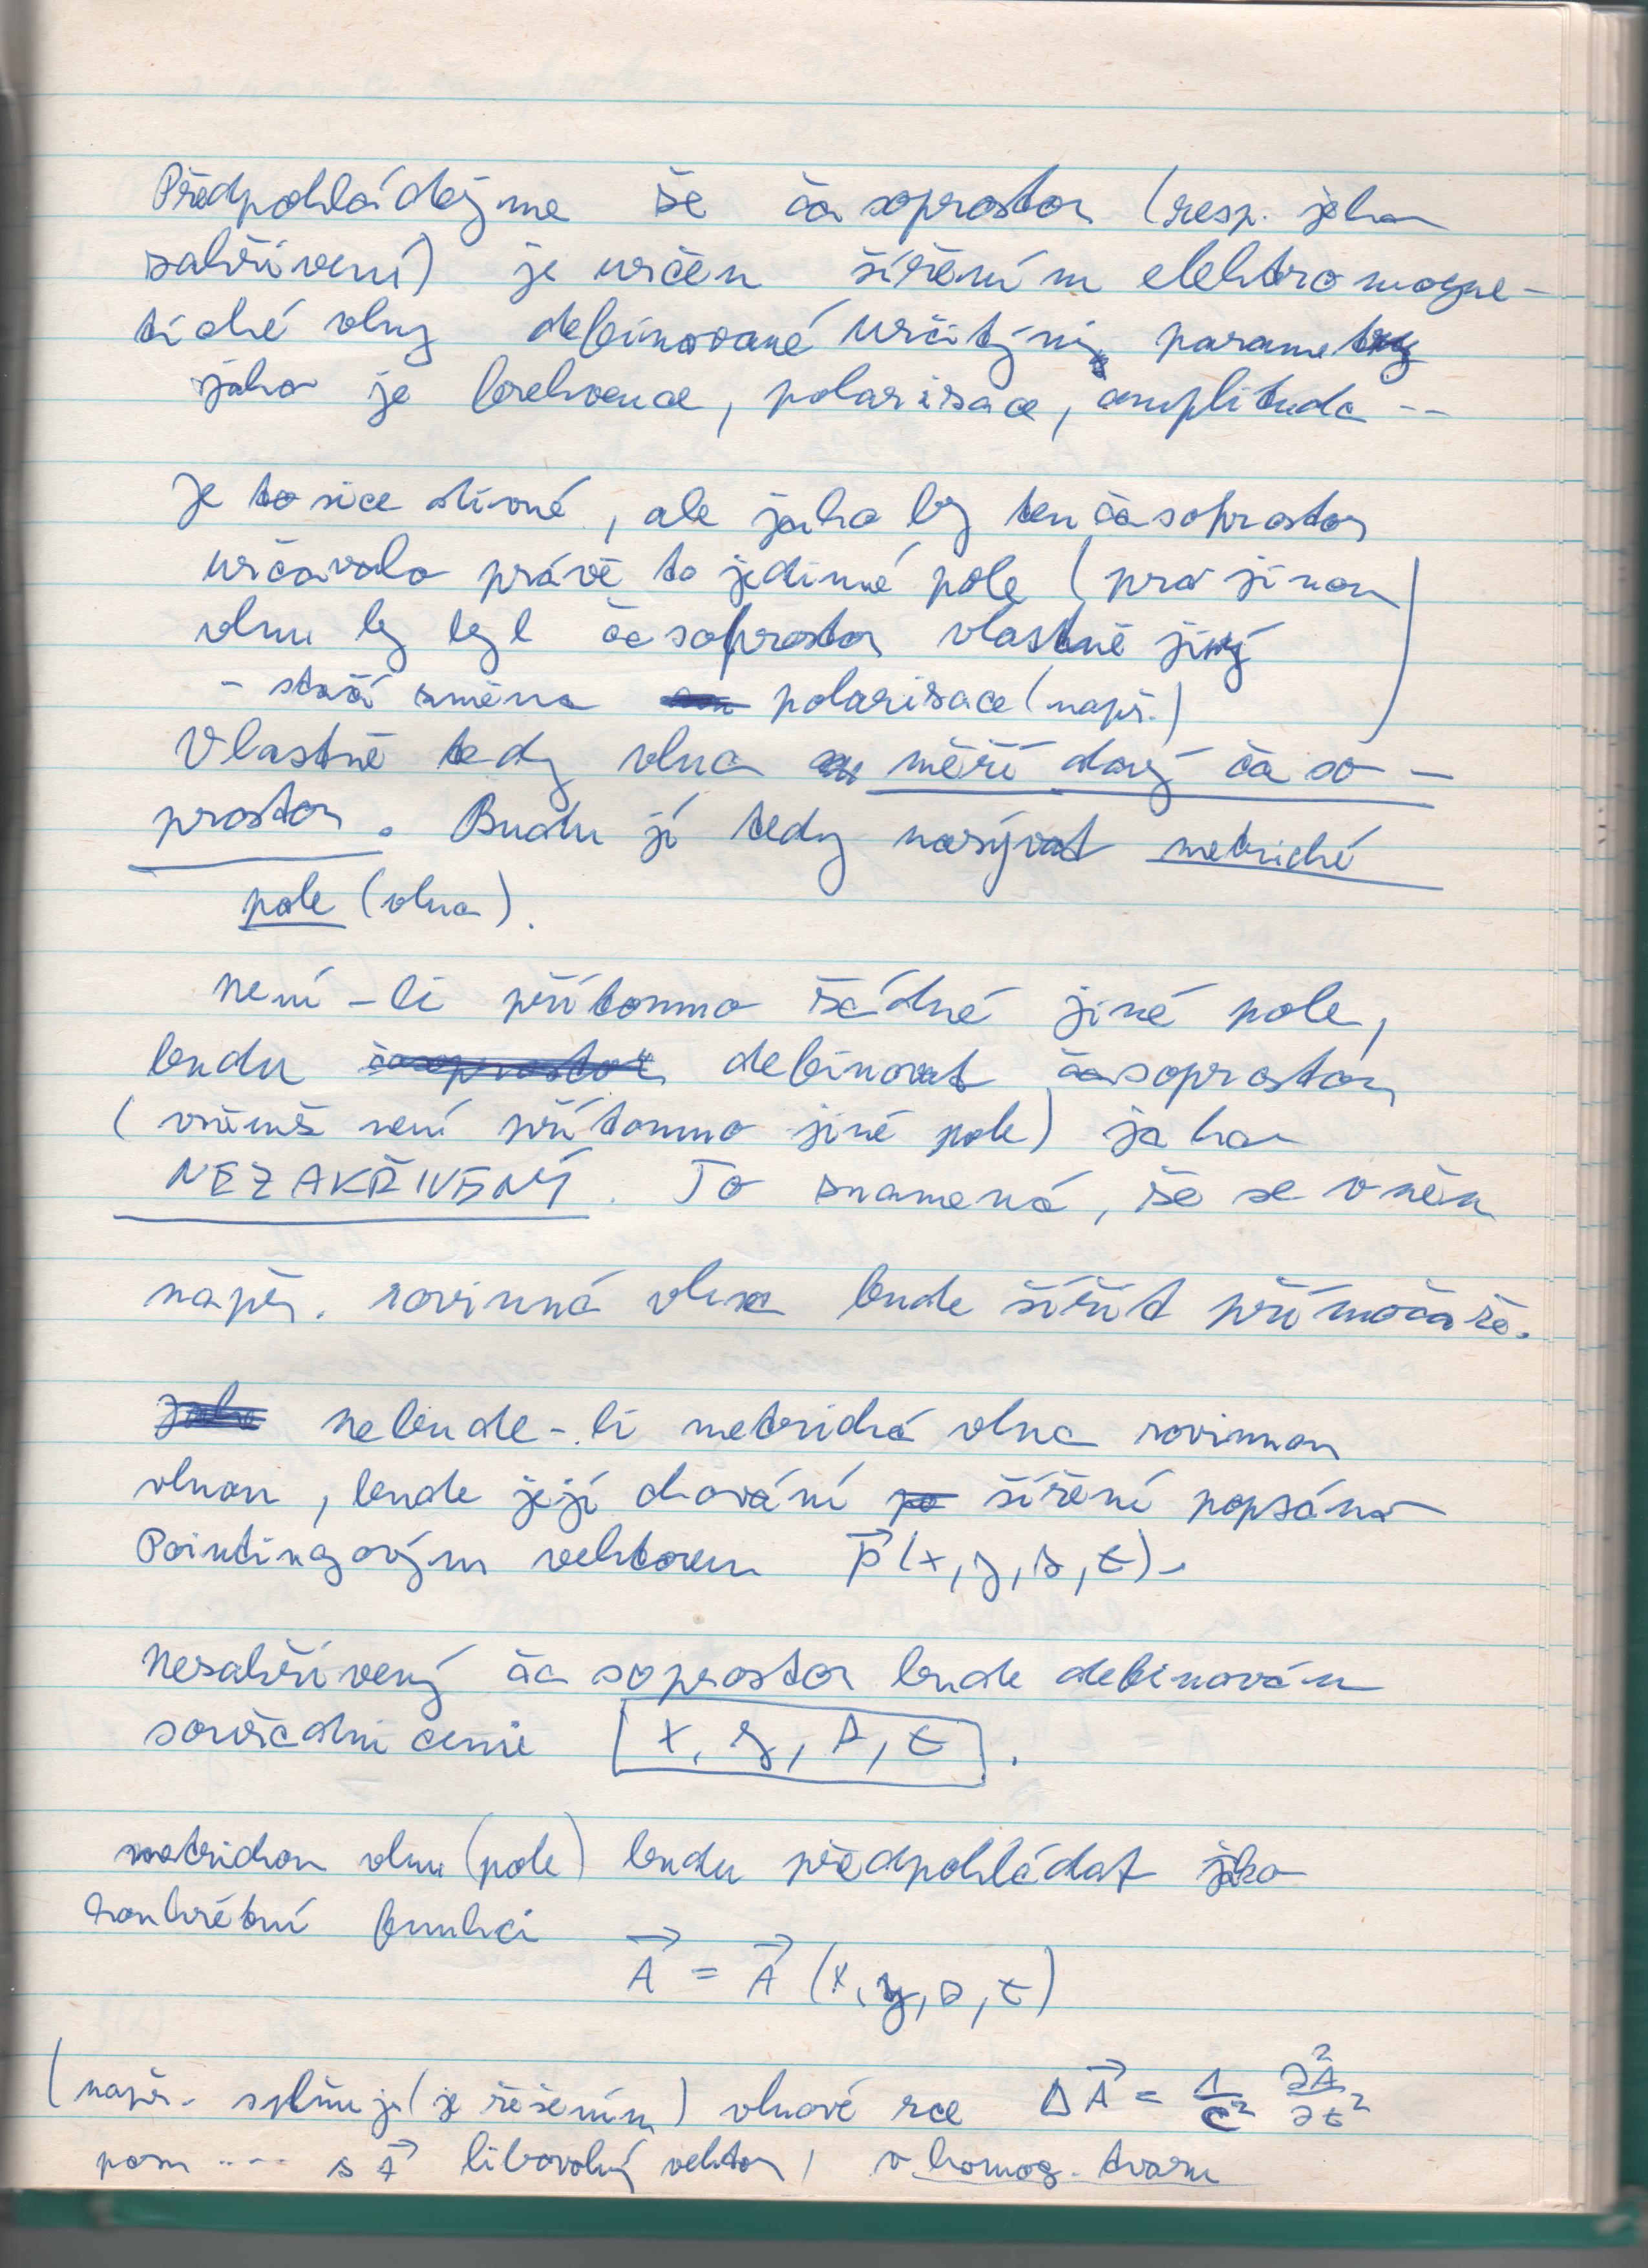 Předpokládejme že časoprostor (resp. jeho
zakřivení) je určen šířením elektromagne-
tické vlny definované určitými parametry
jako je frekvence, polarizace, amplituda --
Je to sice divné, ale jako by ten časoprostor
určovalo právě to jediné pole (pro jinou
vlnu by byl časoprostor vlastně jiný
- stačí změna polarizace (např.)
Vlastně tedy vlna měří daný časo-
prostor. Budu jí tedy nazývat metrické
pole (vlna).
není-li přítomno žádné jiné pole,
budu časoprostor definovat časoprostor
(v němž není přítomno jiné pole) jako
NEZAKŘIVENÝ. To znamená, že se v něm
např. rovinná vlna bude šířit přímočaře.
Jako nebude-li metrická vlna rovinnou
vlnou, bude její chování po šíření popsáno
Pointingovým vektorem P⃗(x,y,z,t).
Nezakřivený časoprostor bude definován
souřadnicemi x, y, z, t.
metrickou vlnu (pole) budu předpokládat jako
konkrétní funkci
A⃗ = A⃗ (x,y,z,t)
(např. splňuje (je řešením) vlnové rce ΔA⃗ = 1/c² ∂²A⃗/∂t²
pozn .... z A⃗ libovolný vektor, v homog. tvaru